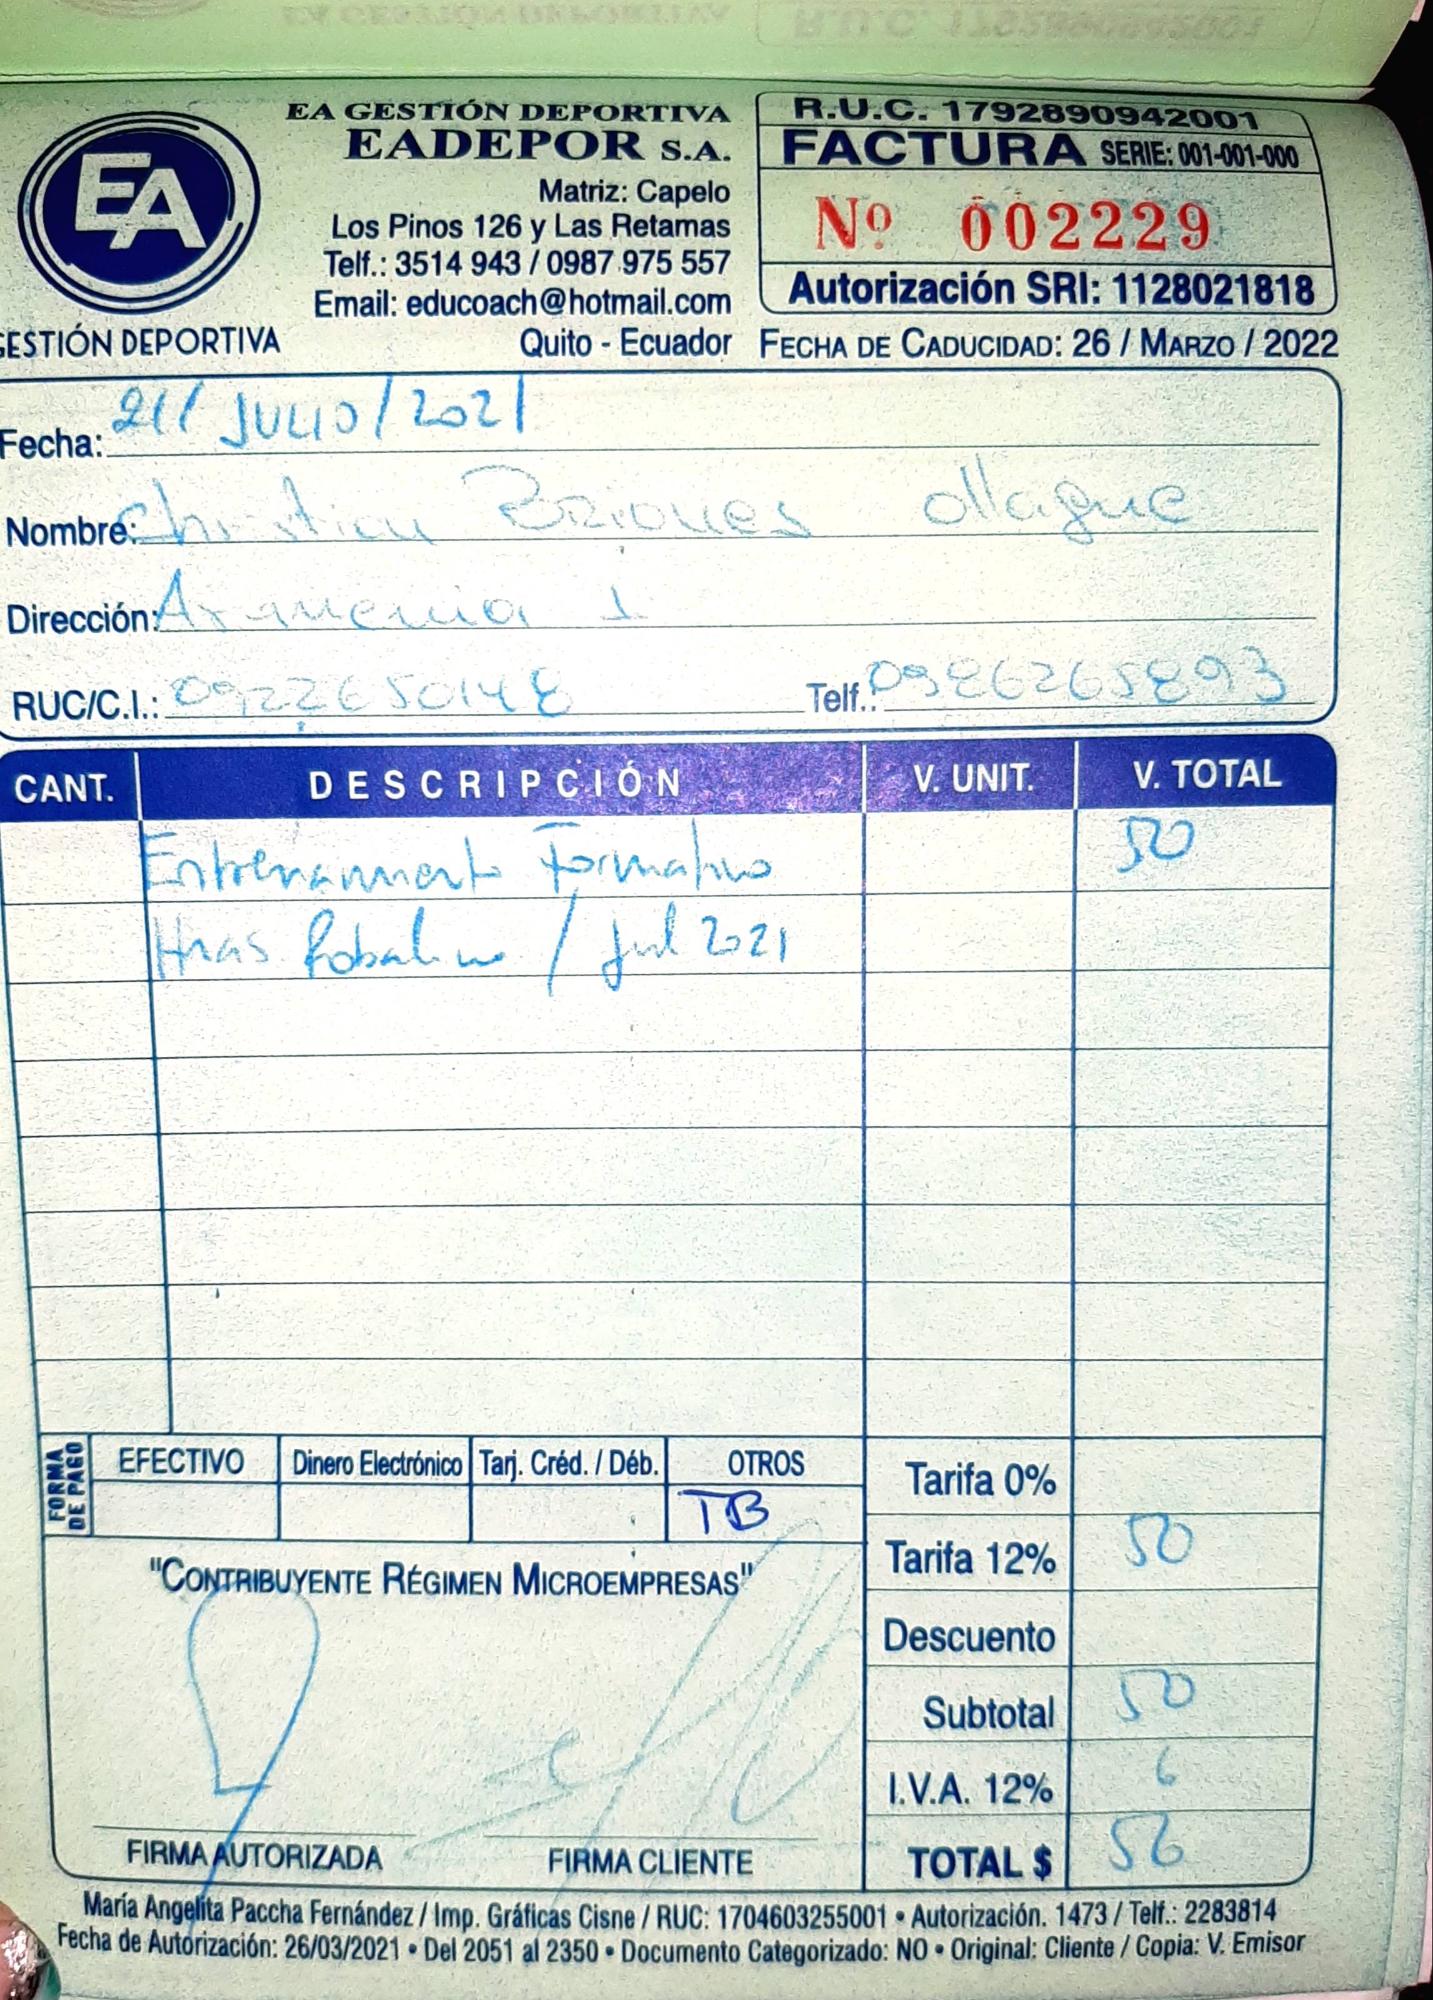 EA GESTIÓN DEPORTIVA
EADEPOR S.A.
Matriz: Capelo
Los Pinos 126 y Las Retamas
Telf.: 3514 943 / 0987 975 557
Email: educoach@hotmail.com
Quito - Ecuador
EA
GESTIÓN DEPORTIVA
R.U.C. 1792890942001
FACTURA SERIE: 001-001-000
Nº 002229
Autorización SRI: 1128021818
FECHA DE CADUCIDAD: 26 / MARZO / 2022
Fecha: 21/ JULIO / 2021
Nombre: Christian Briones Ollague
Dirección: Armenia 1
RUC/C.I.: 0922650148 Telf.: 0986265893
CANT. DESCRIPCIÓN V. UNIT. V. TOTAL
Entrenamiento Formativo 50
Hnas Robalino / Jul 2021
FORMA DE PAGO
EFECTIVO Dinero Electrónico Tarj. Créd. / Déb. OTROS
TB
Tarifa 0%
Tarifa 12% 50
Descuento
Subtotal 50
I.V.A. 12% 6
TOTAL $ 56
"CONTRIBUYENTE RÉGIMEN MICROEMPRESAS"
FIRMA AUTORIZADA FIRMA CLIENTE
María Angelita Paccha Fernández / Imp. Gráficas Cisne / RUC: 1704603255001 • Autorización. 1473 / Telf.: 2283814
Fecha de Autorización: 26/03/2021 • Del 2051 al 2350 • Documento Categorizado: NO • Original: Cliente / Copia: V. Emisor